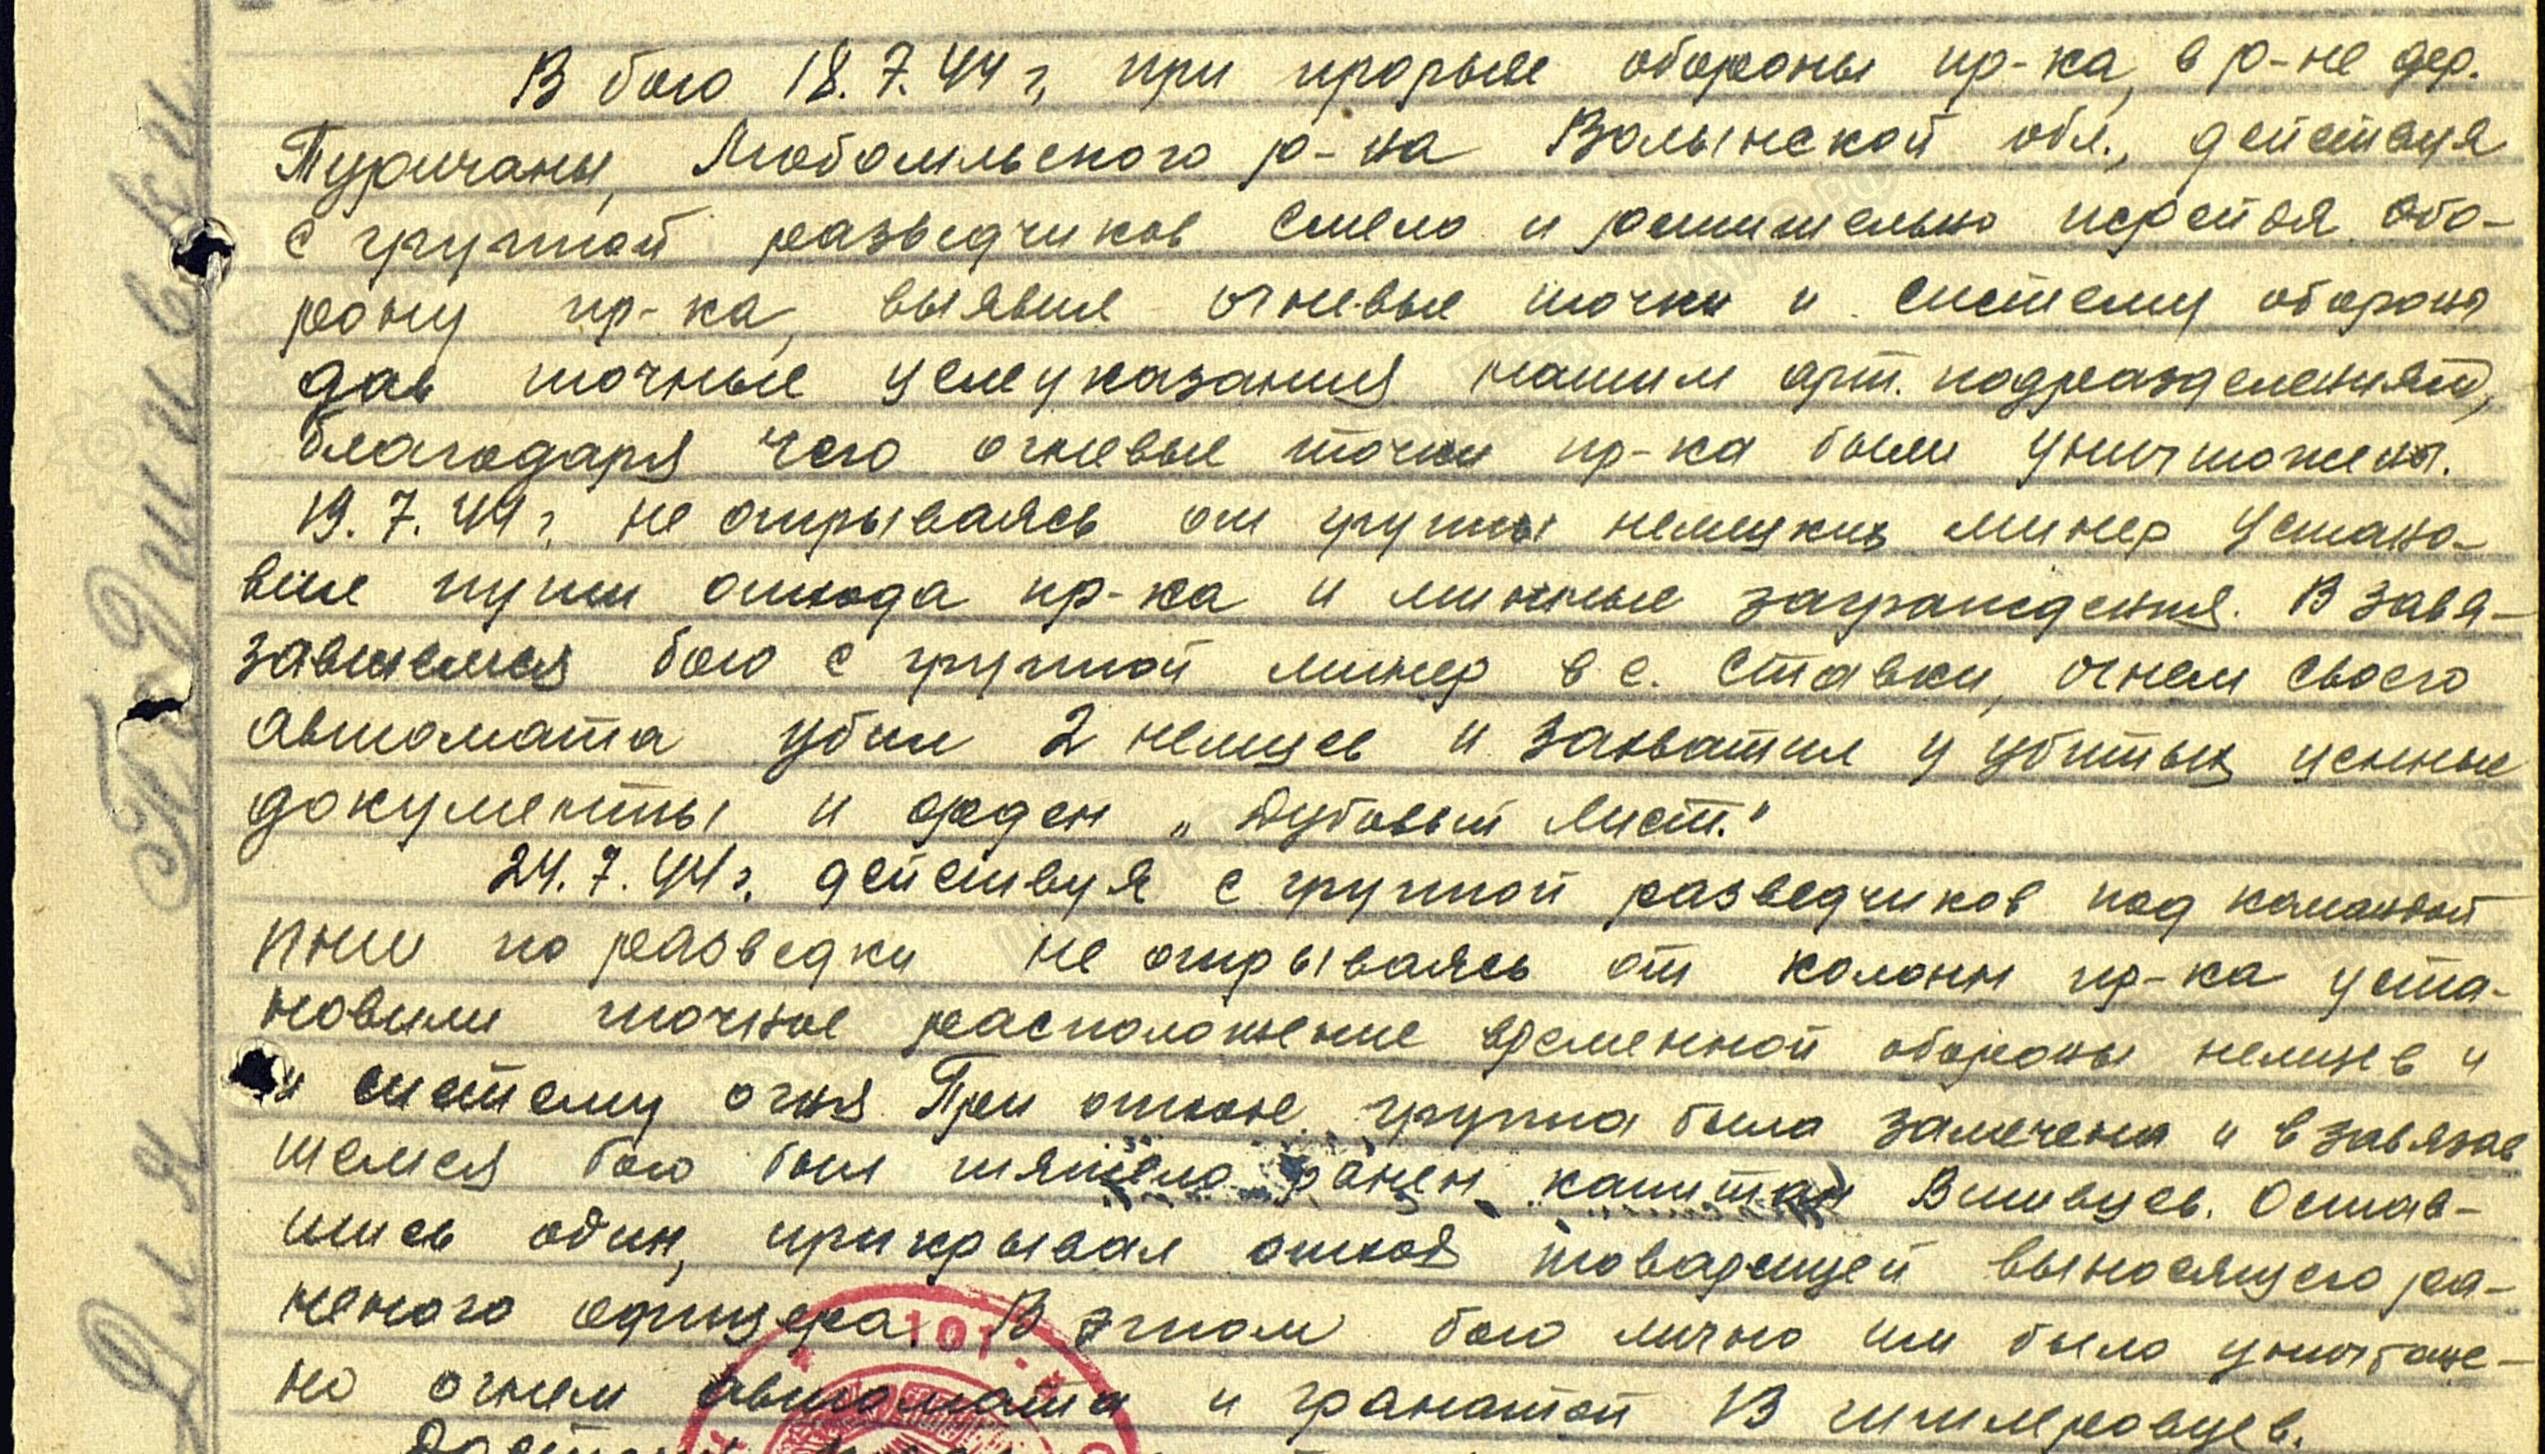 В бою 18.7.44 г, при прорыве обороны пр-ка, в р-не дер.
Туричаны, Любомльского р-на Волынской обл., действуя
с группой разведчиков смело и решительно перейдя обо-
рону пр-ка, выявил огневые точки и систему обороны
дав точные целеуказания нашим арт. подразделениям,
благодаря чего огневые точки пр-ка были уничтожены.
19.7.44 г, не отрываясь от группы немецких минер устано-
вил пути отхода пр-ка и минные заграждения. В завя-
завшемся бою с группой минер в с. Ставки, огнем своего
автомата убил 2 немцев и захватил у убитых ценные
документы и орден „Дубовый лист."
24.7.44 г. действуя с группой разведчиков под командой
ПНШ по разведки не отрываясь от колонн пр-ка уста-
новили точное расположение временной обороны немцев и
и систему огня. При отходе группа была замечена и в завязав
шемся бою был тяжело ранен капитан Вишвцев. Остав-
шись один, прикрывал отход товарищей выносящего ра-
неного офицера. В этом бою лично им было уничтоже-
но огнем автомата и гранатой 13 гитлеровцев.
Для подшивки
101